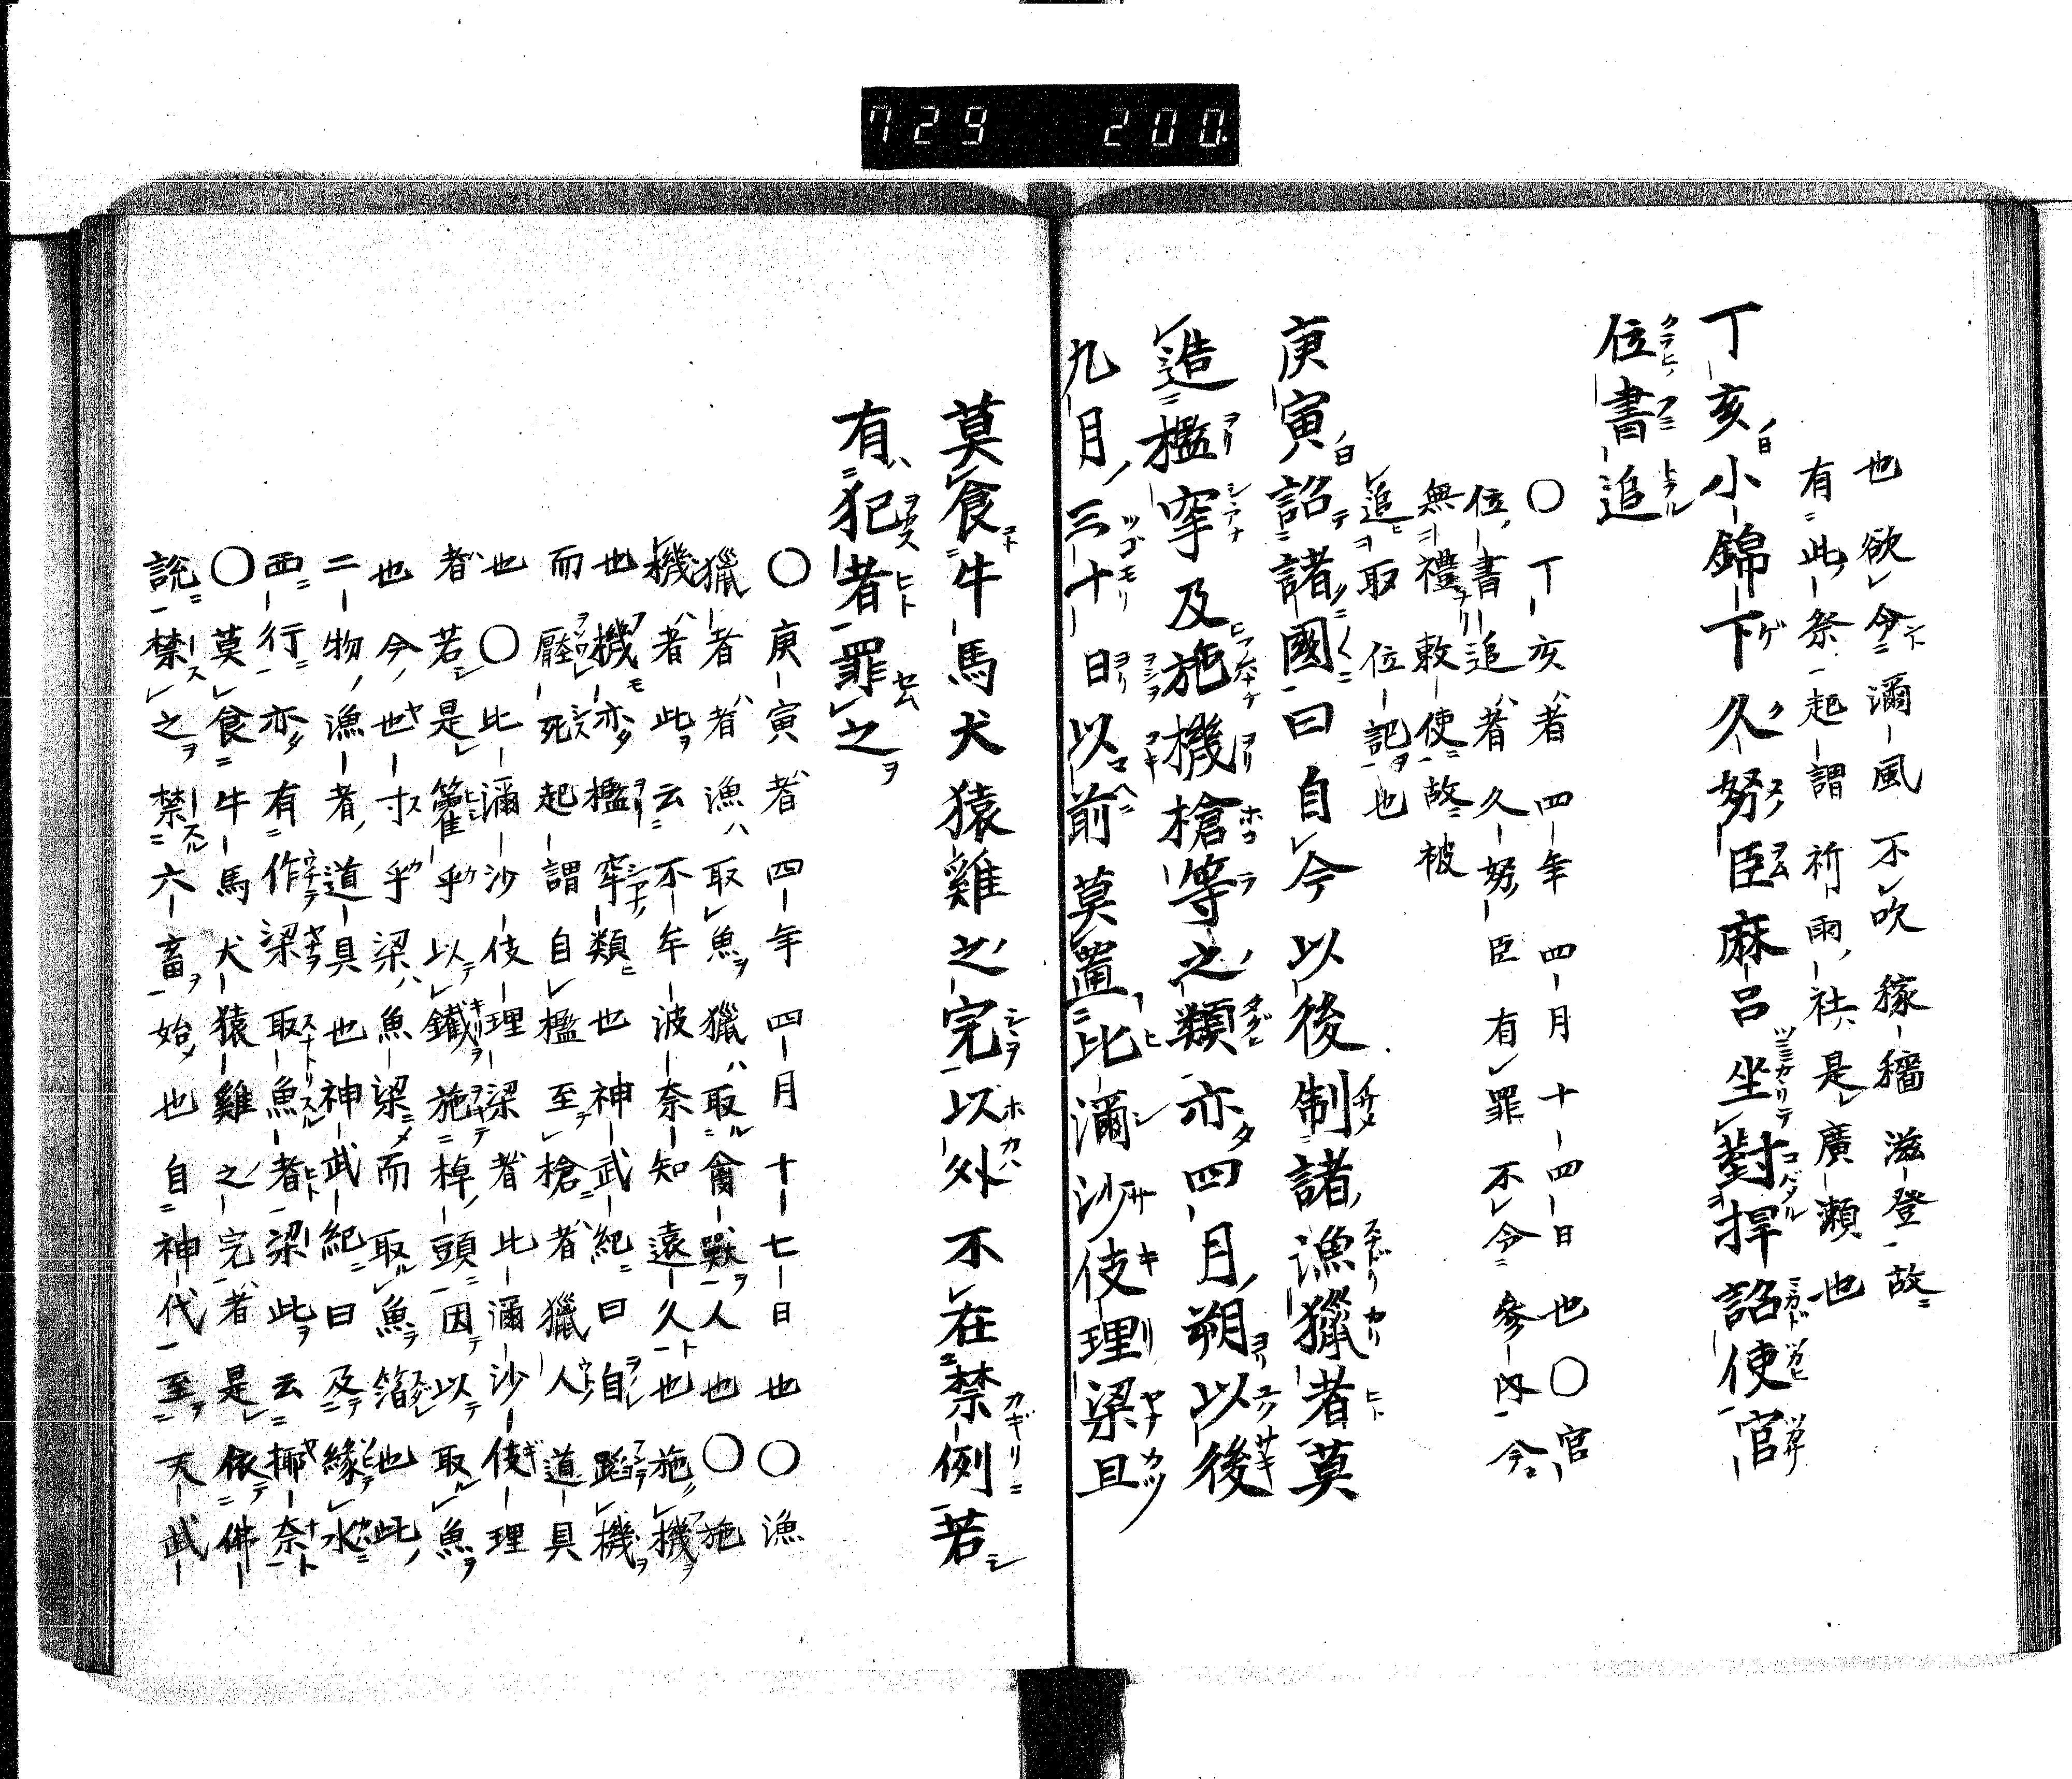 729 200
也欲令瀰風不吹稼穡滋登故
有此祭起謂祈雨社是廣瀨也
丁亥小錦下久努臣麻呂坐對捍詔使官
位書追
〇丁亥者四年四月十四日也〇官
位書追者久努臣有罪不令參內今
無禮敕使故被
追取位記也
庚寅詔諸國曰自今以後制諸漁獵者莫
造檻穽及施機槍等之類亦四月朔以後
九月三十日以前莫置比瀰沙伎理梁且
莫食牛馬犬猿雞之完以外不在禁例若
有犯者罪之
〇庚寅者四年四月十七日也〇漁
獵者者漁取魚獵取禽獸人也〇施
機者此云不牟波奈知遠久也施機
也機亦檻穽類也神武紀曰自蹈機
而壓死起謂自檻至槍者獵人道具
也〇比瀰沙伎理梁者比瀰沙伎理
者若是籊乎以鐵施棹頭因以取魚
也今也寸乎梁魚梁而取魚箔也此
二物漁者道具也神武紀曰及緣水
西行亦有作梁取魚者梁此云揶奈
〇莫食牛馬犬猿雞之完者是依佛
說禁之禁六畜始也自神代至天武